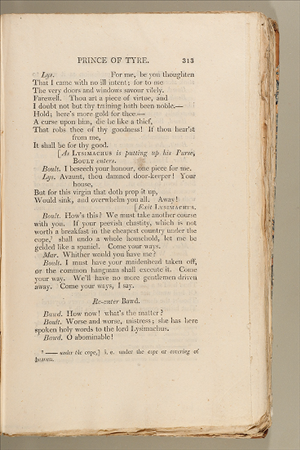 PRINCE OF TYRE. 313
Lys. For me, be you thoughten
That I came with no ill intent; for to me
The very doors and windows savour vilely.
Farewell. Thou art a piece of virtue, and
I doubt not but thy training hath been noble.—
Hold; here's more gold for thee.—
A curse upon him, die he like a thief,
That robs thee of thy goodness! If thou hear'st
from me,
It shall be for thy good.
[As LYSIMACHUS is putting up his Purse,
BOULT enters.
Boult. I beseech your honour, one piece for me.
Lys. Avaunt, thou damned door-keeper! Your
house,
But for this virgin that doth prop it up,
Would sink, and overwhelm you all. Away!
[Exit LYSIMACHUS.
Boult. How's this? We must take another course
with you. If your peevish chastity, which is not
worth a breakfast in the cheapest country under the
cope,⁹ shall undo a whole household, let me be
gelded like a spaniel. Come your ways.
Mar. Whither would you have me?
Boult. I must have your maidenhead taken off,
or the common hangman shall execute it. Come
your way. We'll have no more gentlemen driven
away. Come your ways, I say.
Re-enter Bawd.
Bawd. How now! what's the matter?
Boult. Worse and worse, mistress; she has here
spoken holy words to the lord Lysimachus.
Bawd. O abominable!
⁹ —— under the cope,] i. e. under the cope or covering of
heaven.